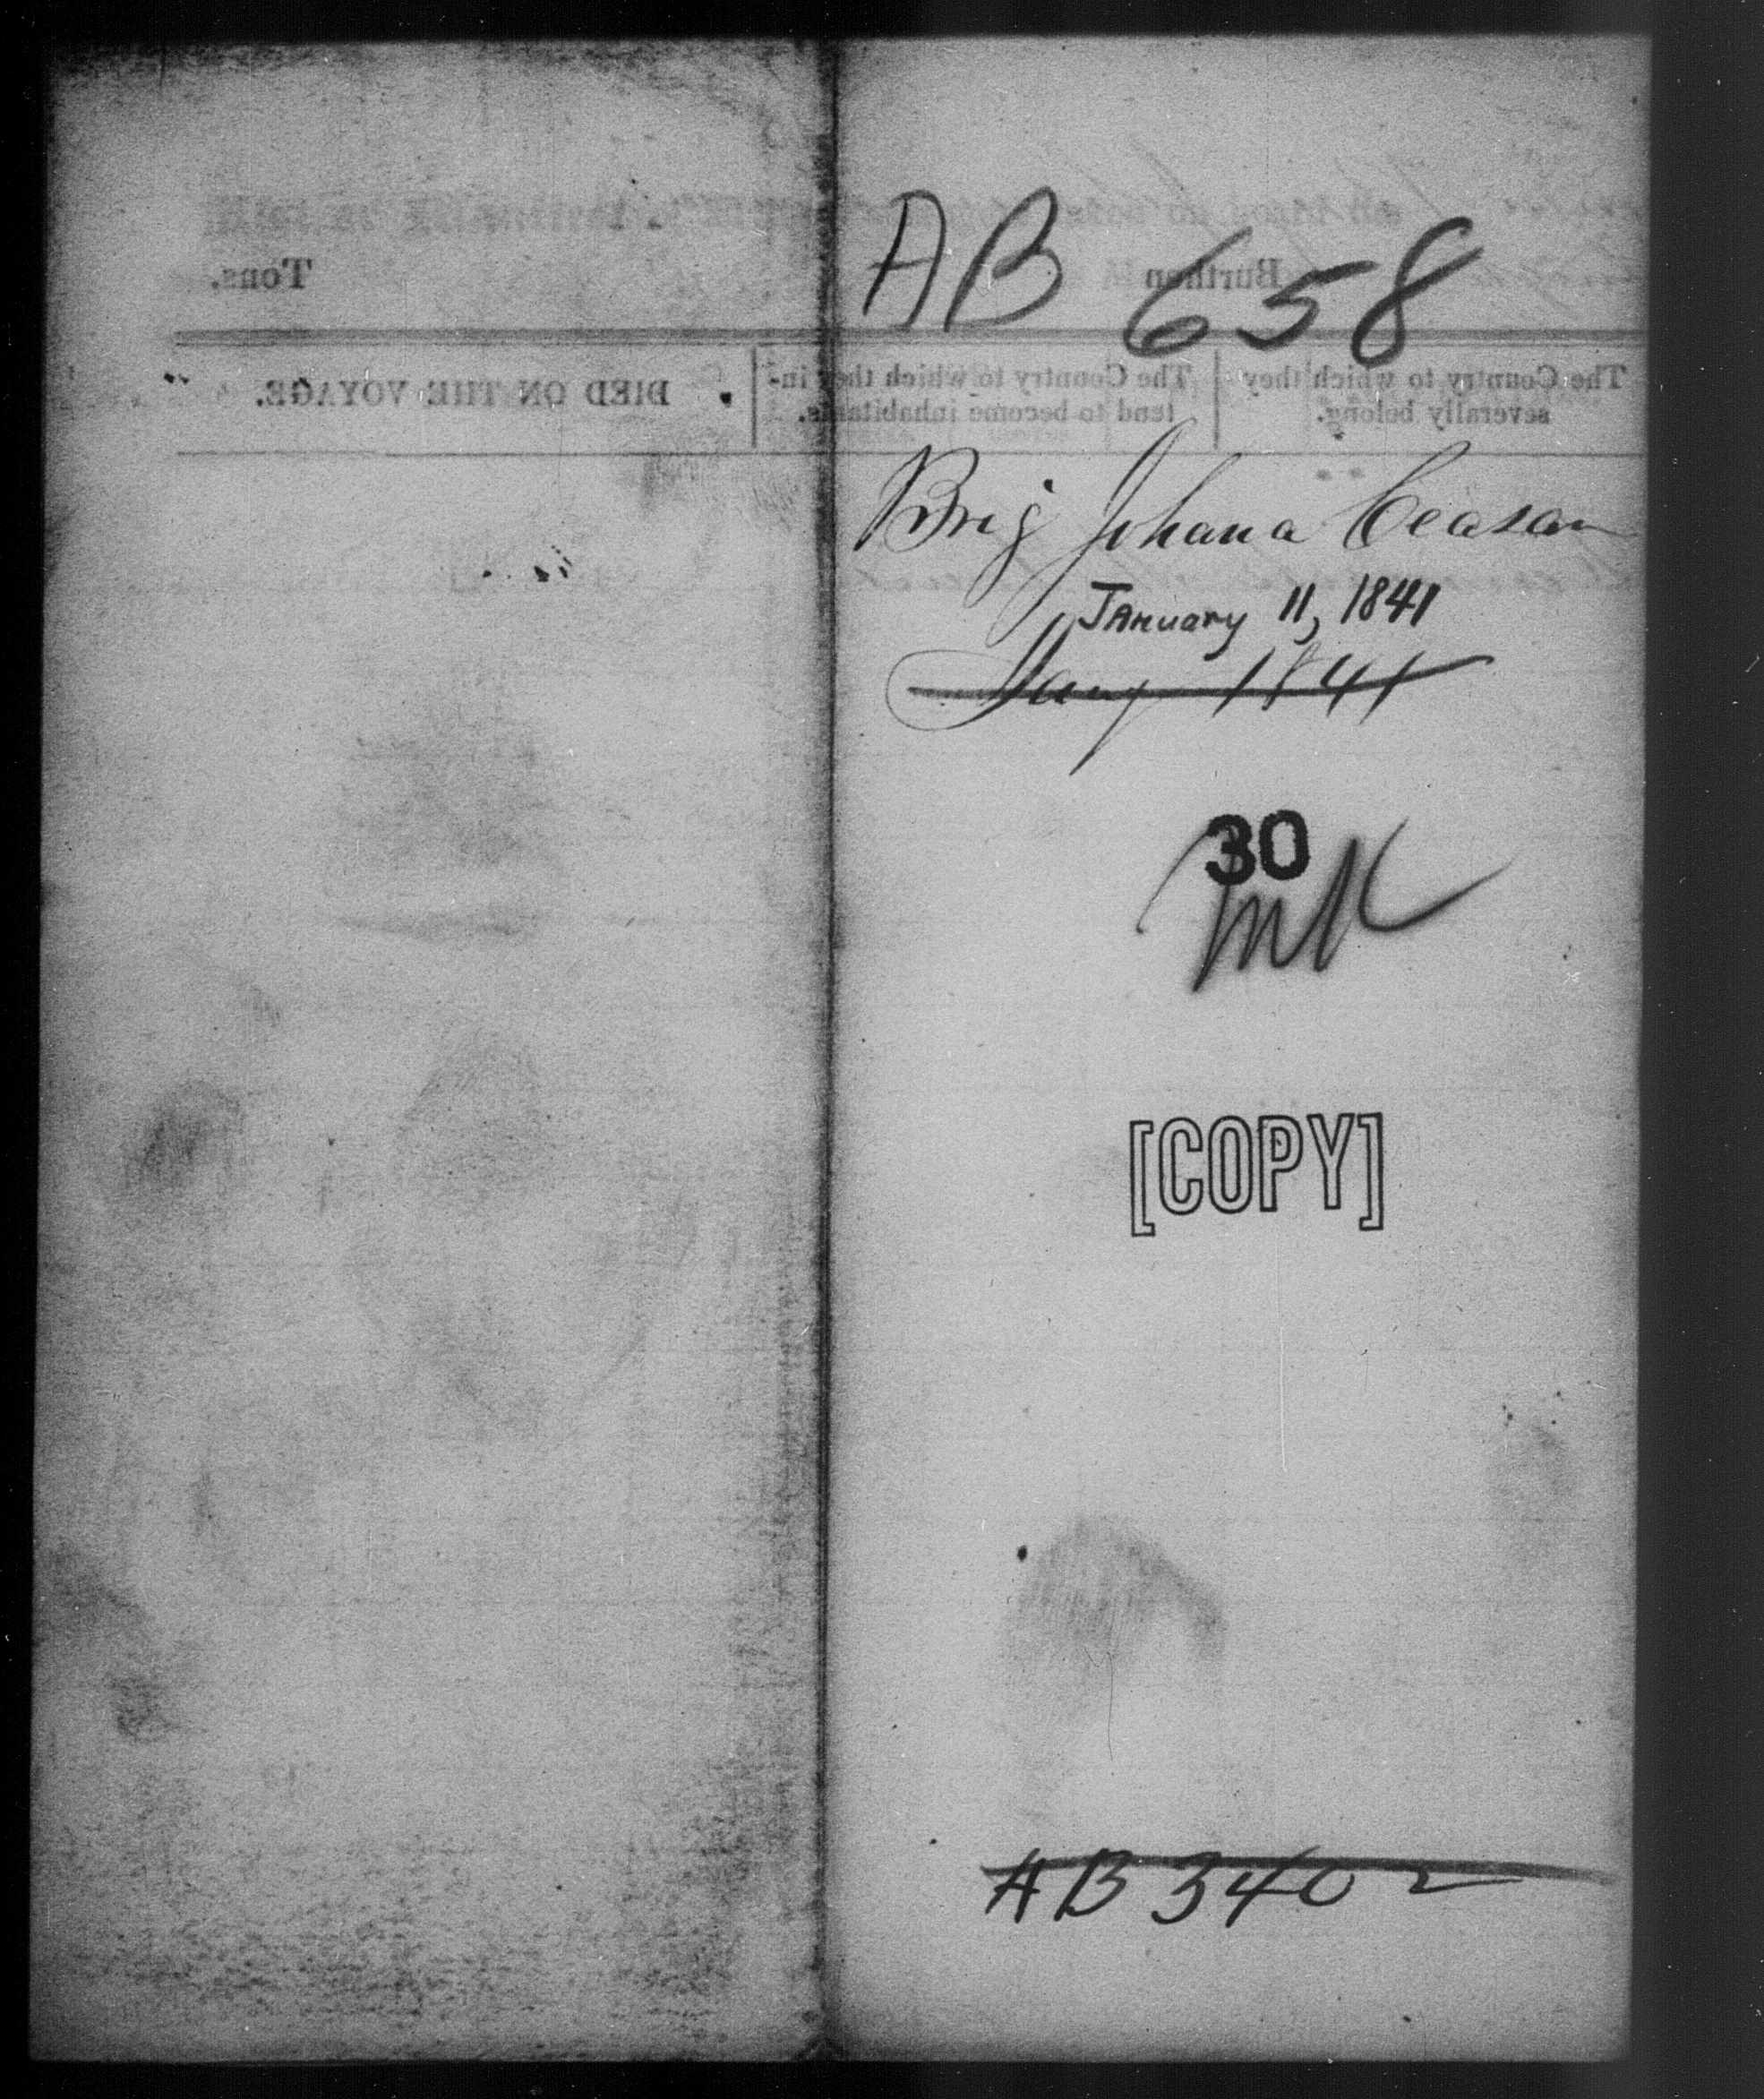 AB 658
Tons. Burthen
DIED ON THE VOYAGE. The Country to which they in- The Country to which they
tend to become inhabitants. severally belong.
Brig Johana Ceasar
January 11, 1841
Jany 1841
30
[COPY]
AB 3402